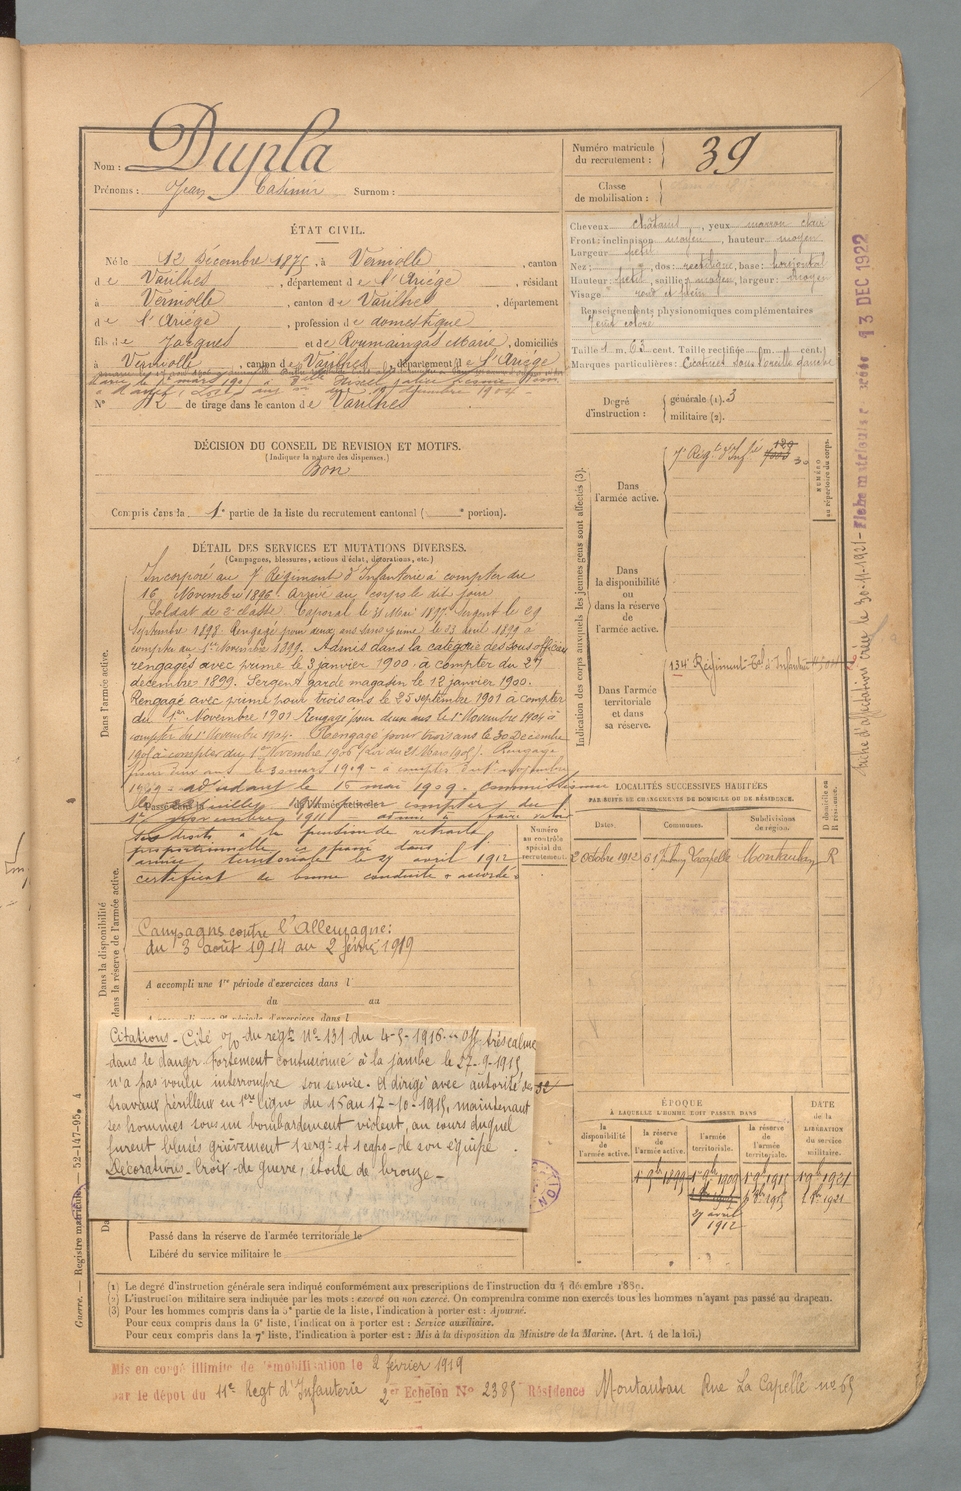 Nom : Dupla
Prénoms : Jean Casimir Surnom :
Numéro matricule du recrutement : 39
Classe de mobilisation :
ÉTAT CIVIL.
Né le 12 Décembre 1875, à Verniolle, canton
de Varilhes, département de l'Ariége, résidant
à Verniolle, canton de Varilhes, département
de l'Ariége, profession de domestique
fils de Jacques et de Roumaingas Marie, domiciliés
à Verniolle, canton de Varilhes, département de l'Ariége
N° 12 de tirage dans le canton de Varilhes
Cheveux châtains, yeux marron clair
Front : inclinaison moyen, hauteur moyen
Largeur petit
Nez : dos : rectiligne, base : horizontal
Hauteur : petit, saillie : moyen, largeur : moyen
Visage rond et plein
Renseignements physionomiques complémentaires
Teint coloré
Taille 1 m. 63 cent. Taille rectifiée m. cent.
Marques particulières : Cicatrice sous l'oreille gauche
Degré d'instruction : générale (1). 3
militaire (2).
DÉCISION DU CONSEIL DE REVISION ET MOTIFS.
(Indiquer la nature des dispenses.)
Bon
Compris dans la 1e partie de la liste du recrutement cantonal ( e portion).
DÉTAIL DES SERVICES ET MUTATIONS DIVERSES.
(Campagnes, blessures, actions d'éclat, décorations, etc.)
Dans l'armée active.
Incorporé au 7 Régiment d'Infanterie à compter du
16 Novembre 1896. Arrivé au corps le dit jour
Soldat de 2e classe. Caporal le 21 Mai 1897. Sergent le 29
Septembre 1898. Rengagé pour deux ans sans prime le 23 avril 1899 à
compter du 1er Novembre 1899. Admis dans la catégorie des sous officiers
rengagés avec prime le 3 janvier 1900, à compter du 27
decembre 1899. Sergent garde magasin le 12 janvier 1900.
Rengagé avec prime pour trois ans le 25 septembre 1901 à compter
du 1er Novembre 1901 Rengagé pour deux ans le 1er Novembre 1904 à
compter du 1er Novembre 1904. Rengagé pour trois ans le 30 Décembre
1905 à compter du 1er Novembre 1906 (Loi du 21 Mars 1905). Rengagé
pour deux ans le 30 mars 1909 à compter du 1er novembre
1909 - adjudant le 15 mai 1909. commissionné
le juillet 1911 à compter du
1er novembre 1911 - admis à faire valoir
ses droits à la pension de retraite
proportionnelle et passé dans l'
armée territoriale le 27 avril 1912
certificat de bonne conduite "accordé"
Campagne contre l'Allemagne :
du 3 août 1914 au 2 février 1919
A accompli une 1re période d'exercices dans l'
du au
Citations - Cité o/o du régt N° 131 du 4-5-1916 ... Off. très calme
dans le danger. Fortement contusionné à la jambe le 27-9-1915,
n'a pas voulu interrompre son service. A dirigé avec autorité des
travaux périlleux en 1ère ligne du 15 au 17-10-1915, maintenant
ses hommes sous un bombardement violent, au cours duquel
furent blessés grièvement 1 sergt et 1 capo. de son équipe.
Décorations. Croix de guerre, étoile de bronze -
Passé dans la réserve de l'armée territoriale le
Libéré du service militaire le
Dans la disponibilité
ou dans la réserve de l'armée active.
Numéro au contrôle spécial du recrutement
Indication des corps auxquels les jeunes gens sont affectés (3).
NUMÉRO au répertoire du corps.
Dans l'armée active.
7e Régt d'Infie
Dans la disponibilité ou dans la réserve de l'armée active.
Dans l'armée territoriale et dans sa réserve.
134e Régiment Tal d'Infanterie
LOCALITÉS SUCCESSIVES HABITÉES
PAR SUITE DE CHANGEMENTS DE DOMICILE OU DE RÉSIDENCE.
Dates. Communes. Subdivisions de région. D domicile ou R résidence.
2 octobre 1912 Lacapelle Montauban R
ÉPOQUE
À LAQUELLE L'HOMME DOIT PASSER DANS
DATE de la LIBÉRATION du service militaire.
la disponibilité de l'armée active.
la réserve de l'armée active.
l'armée territoriale.
la réserve de l'armée territoriale.
1er 9bre 1899 1er 9bre 1909 1er 9bre 1915 1er 9bre 1921
27 avril 1912
(1) Le degré d'instruction générale sera indiqué conformément aux prescriptions de l'instruction du 4 décembre 1889.
(2) L'instruction militaire sera indiquée par les mots : exercé ou non exercé. On comprendra comme non exercés tous les hommes n'ayant pas passé au drapeau.
(3) Pour les hommes compris dans la 5e partie de la liste, l'indication à porter est : Ajourné.
Pour ceux compris dans la 6e liste, l'indication à porter est : Service auxiliaire.
Pour ceux compris dans la 7e liste, l'indication à porter est : Mis à la disposition du Ministre de la Marine. (Art. 4 de la loi.)
Mis en congé illimité de démobilisation le 2 février 1919
par le dépot du 11e Regt d'Infanterie 2e Echelon N° 2385 Résidence Montauban Rue La Capelle n° 65
Guerre. — Registre matricule. — 52-147-95. 4
fiche d'affectation créée le 30-11-1921 - Fiche matricule créée 13 DEC 1922